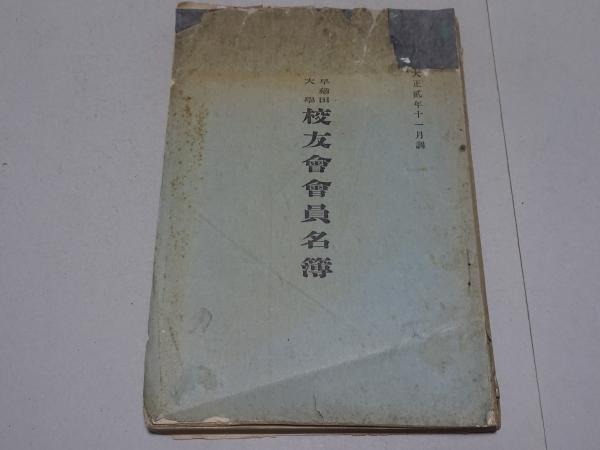 大正貳年十一月調
早稲田
大學
校友會會員名簿